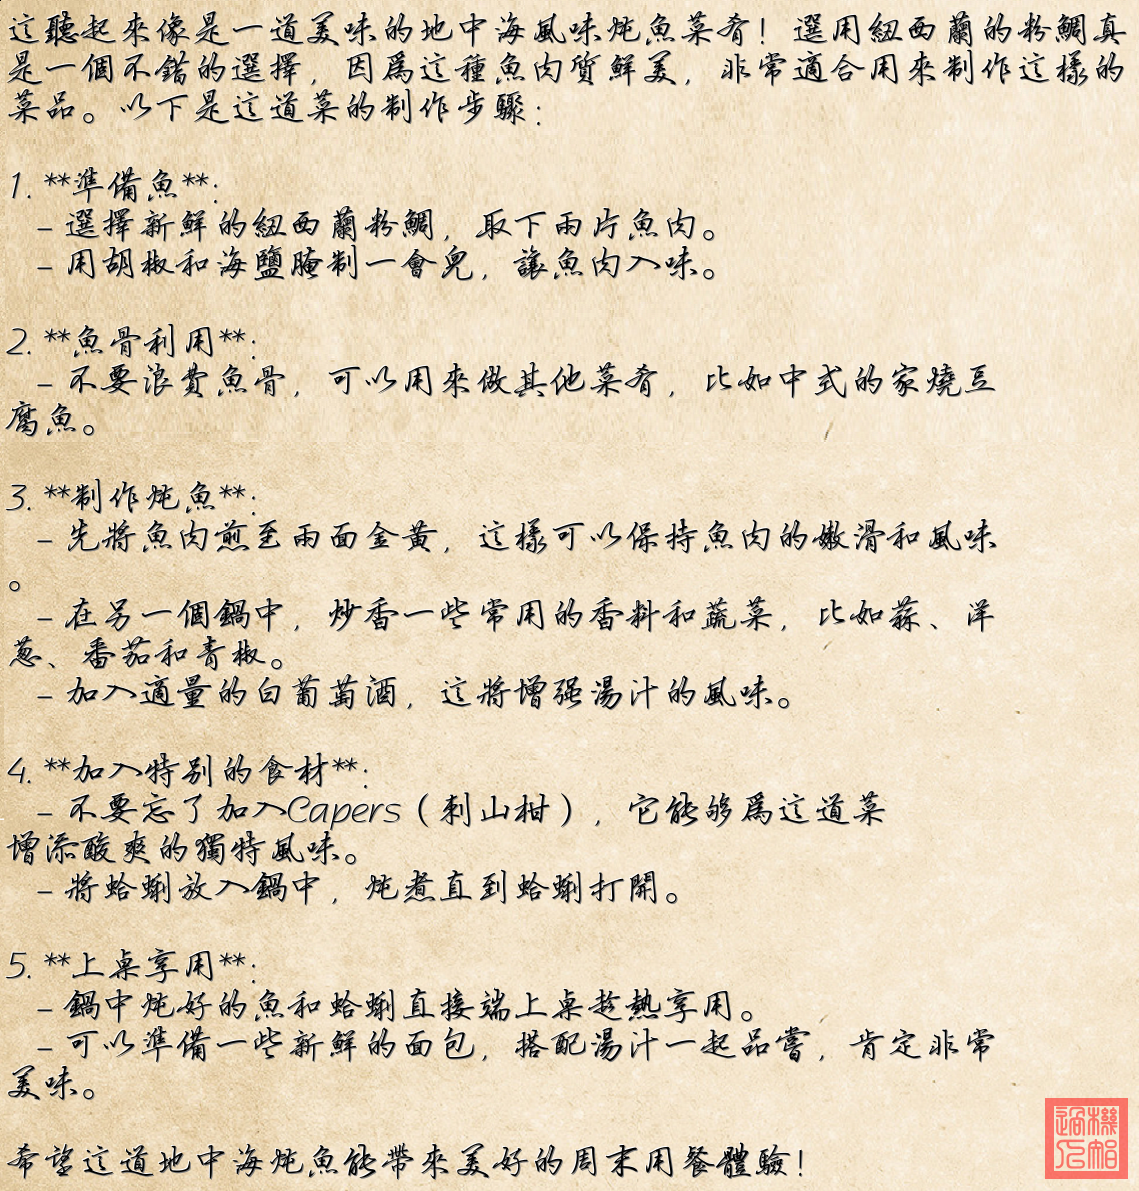 這聽起來像是一道美味的地中海風味炖魚菜肴！選用紐西蘭的粉鯛真
是一個不錯的選擇，因爲這種魚肉質鮮美，非常適合用來制作這樣的
菜品。以下是這道菜的制作步驟：
1. **準備魚**:
- 選擇新鮮的紐西蘭粉鯛，取下兩片魚肉。
- 用胡椒和海鹽腌制一會兒，讓魚肉入味。
2. **魚骨利用**:
- 不要浪費魚骨，可以用來做其他菜肴，比如中式的家燒豆
腐魚。
3. **制作炖魚**:
- 先將魚肉煎至兩面金黄，這樣可以保持魚肉的嫩滑和風味
。
- 在另一個鍋中，炒香一些常用的香料和蔬菜，比如蒜、洋
葱、番茄和青椒。
- 加入適量的白葡萄酒，這將增强湯汁的風味。
4. **加入特别的食材**:
- 不要忘了加入Capers（刺山柑），它能够爲這道菜
增添酸爽的獨特風味。
- 將蛤蜊放入鍋中，炖煮直到蛤蜊打開。
5. **上桌享用**:
- 鍋中炖好的魚和蛤蜊直接端上桌趁熱享用。
- 可以準備一些新鮮的面包，搭配湯汁一起品嘗，肯定非常
美味。
希望這道地中海炖魚能帶來美好的周末用餐體驗！